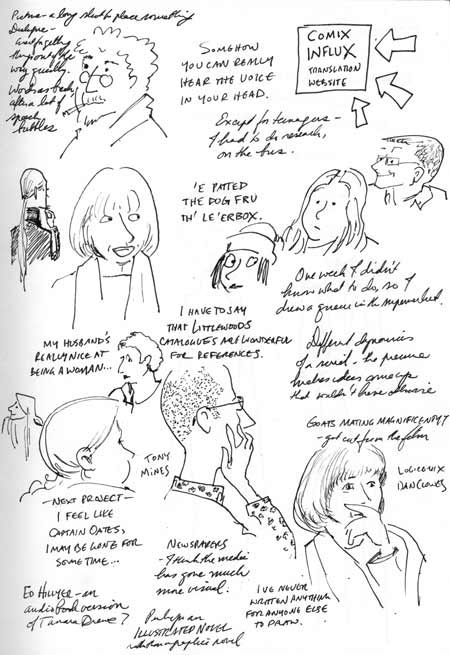 a long shot to place something
SOMEHOW
YOU CAN REALLY
HEAR THE VOICE
IN YOUR HEAD.
COMIX
INFLUX
TRANSLATION
WEBSITE
speech
bubbles
Except for teenagers -
I had to do research,
on the bus.
'E PATTED
THE DOG FRU
TH' LE'ERBOX.
One week I didn't
know what to do, so I
drew a queue in the supermarket.
I HAVE TO SAY
THAT LITTLEWOODS
CATALOGUES ARE WONDERFUL
FOR REFERENCES.
MY HUSBAND'S
REALLY NICE AT
BEING A WOMAN...
Different dynamics
of a serial - the pressure
makes ideas
that wouldn't have otherwise
GOATS MATING MAGNIFICENTLY?
- got cut from the film
TONY
MINES
LOGICOMIX
DAN CLOWES
- NEXT PROJECT -
I FEEL LIKE
CAPTAIN OATES,
I MAY BE GONE FOR
SOME TIME...
NEWSPAPERS
- I think the media
has gone much
more visual.
I'VE NEVER
WRITTEN ANYTHING
FOR ANYONE ELSE
TO DRAW.
ED HILLYER - an
audio book version
of Tamara Drewe?
ILLUSTRATED NOVEL
rather than graphic novel